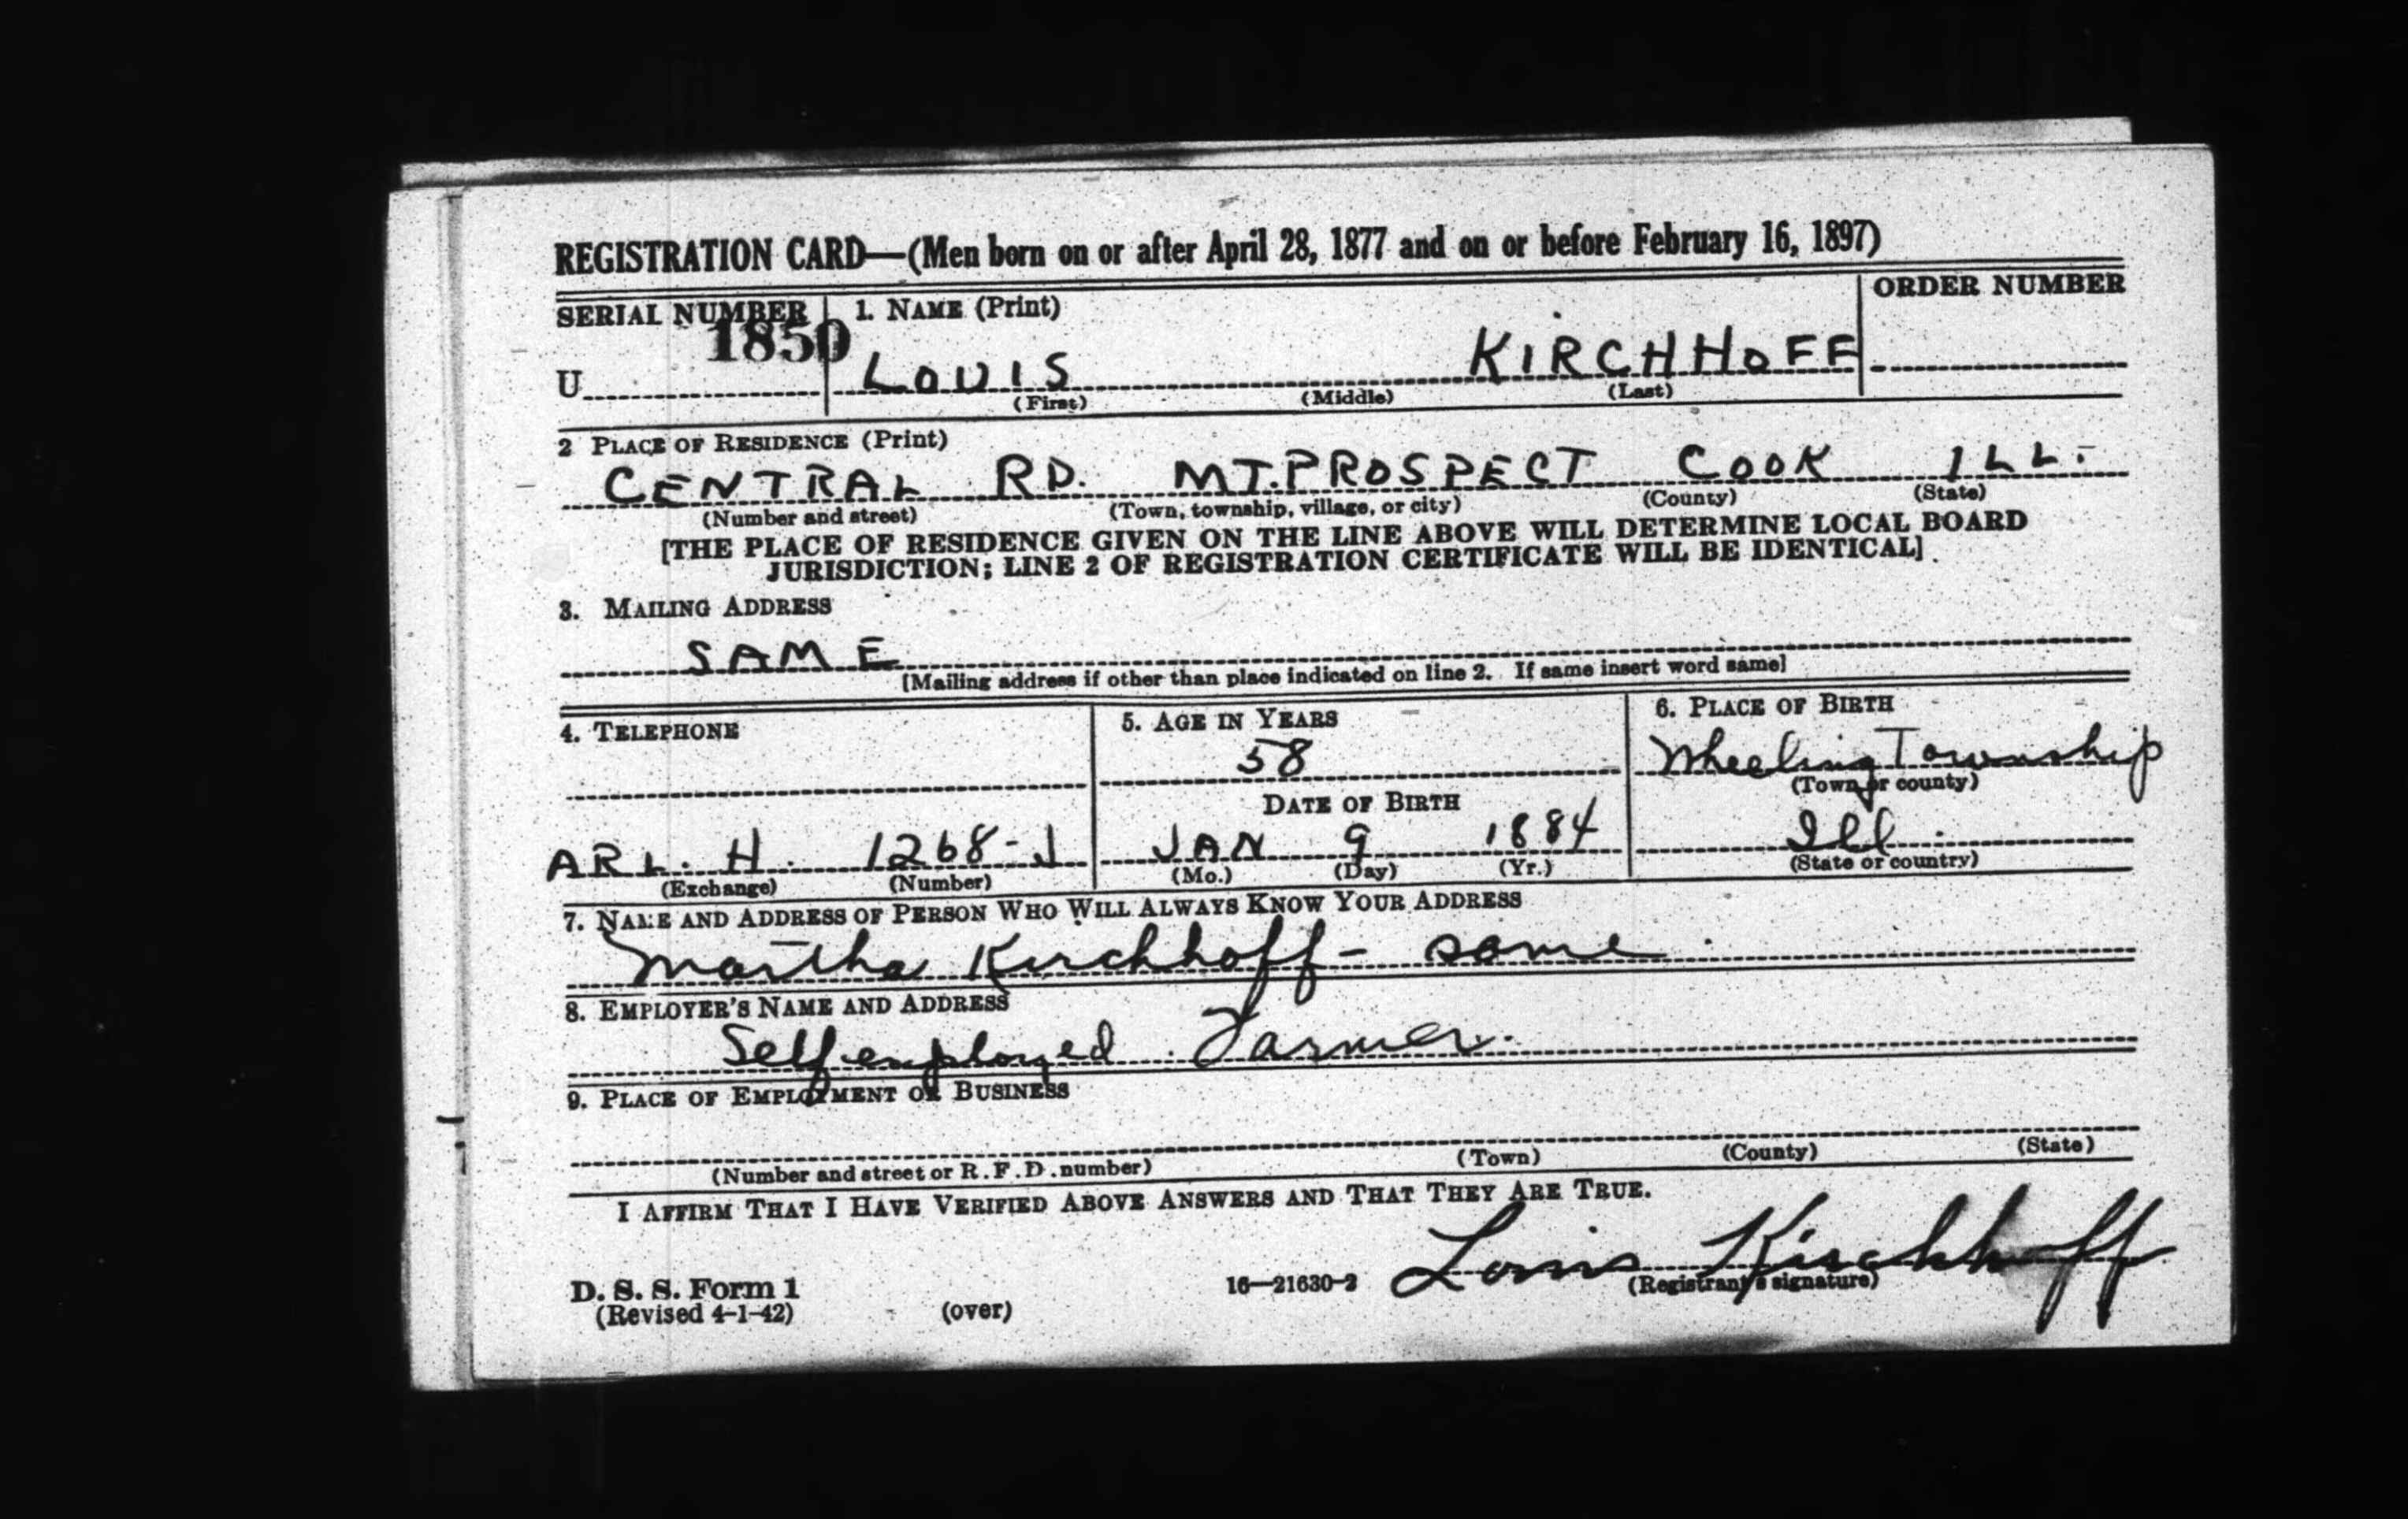 REGISTRATION CARD—(Men born on or after April 28, 1877 and on or before February 16, 1897)
SERIAL NUMBER 1. NAME (Print) ORDER NUMBER
1850
U LOUIS KIRCHHOFF
(First) (Middle) (Last)
2 PLACE OF RESIDENCE (Print)
CENTRAL RD. MT. PROSPECT COOK ILL.
(Number and street) (Town, township, village, or city) (County) (State)
[THE PLACE OF RESIDENCE GIVEN ON THE LINE ABOVE WILL DETERMINE LOCAL BOARD
JURISDICTION; LINE 2 OF REGISTRATION CERTIFICATE WILL BE IDENTICAL]
3. MAILING ADDRESS
SAME
[Mailing address if other than place indicated on line 2. If same insert word same]
4. TELEPHONE 5. AGE IN YEARS 6. PLACE OF BIRTH
58 Wheeling Township
(Town or county)
DATE OF BIRTH
ARL. H. 1268-J JAN 9 1884 Ill.
(Exchange) (Number) (Mo.) (Day) (Yr.) (State or country)
7. NAME AND ADDRESS OF PERSON WHO WILL ALWAYS KNOW YOUR ADDRESS
Martha Kirchhoff - same.
8. EMPLOYER'S NAME AND ADDRESS
Self employed Farmer.
9. PLACE OF EMPLOYMENT OR BUSINESS
(Number and street or R. F. D. number) (Town) (County) (State)
I AFFIRM THAT I HAVE VERIFIED ABOVE ANSWERS AND THAT THEY ARE TRUE.
Louis Kirchhoff
D. S. S. Form 1 16—21630-2 (Registrant's signature)
(Revised 4-1-42) (over)